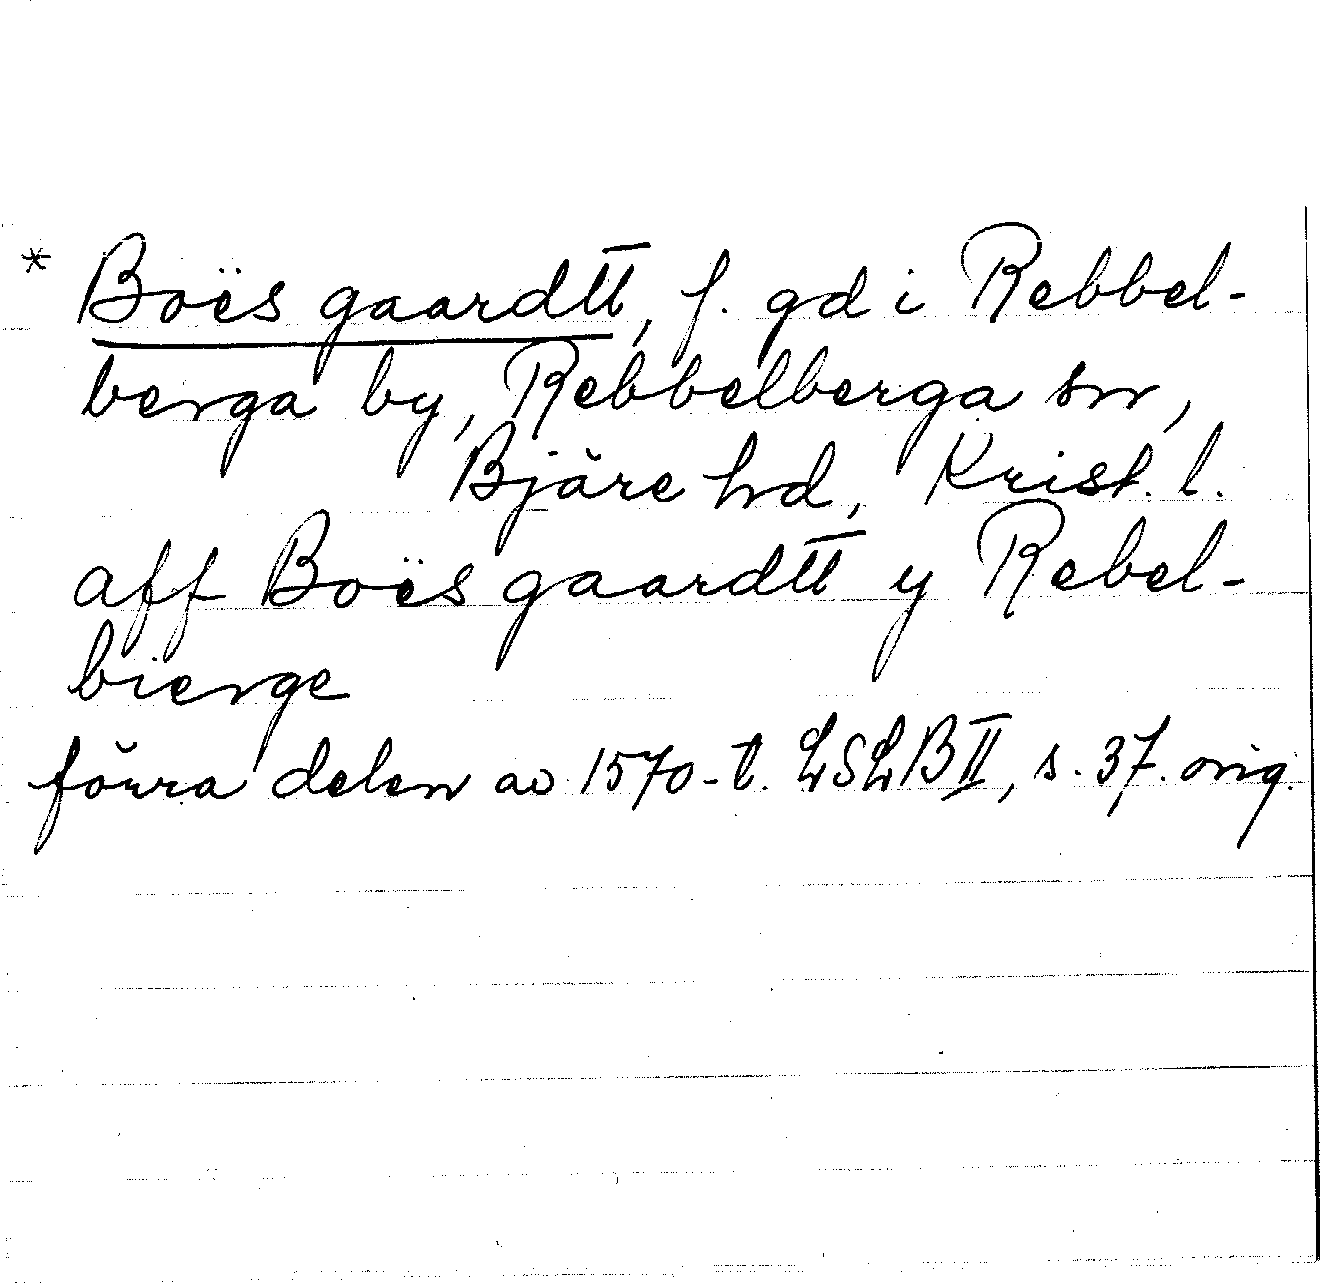 * Boës gaardtt, f. gd i Rebbel-
berga by, Rebbelberga sn,
Bjäre hd, Krist. l.
aff Boës gaardtt y Rebel-
bierge
förra delen av 1570-t. LSLB II, s. 37. orig.